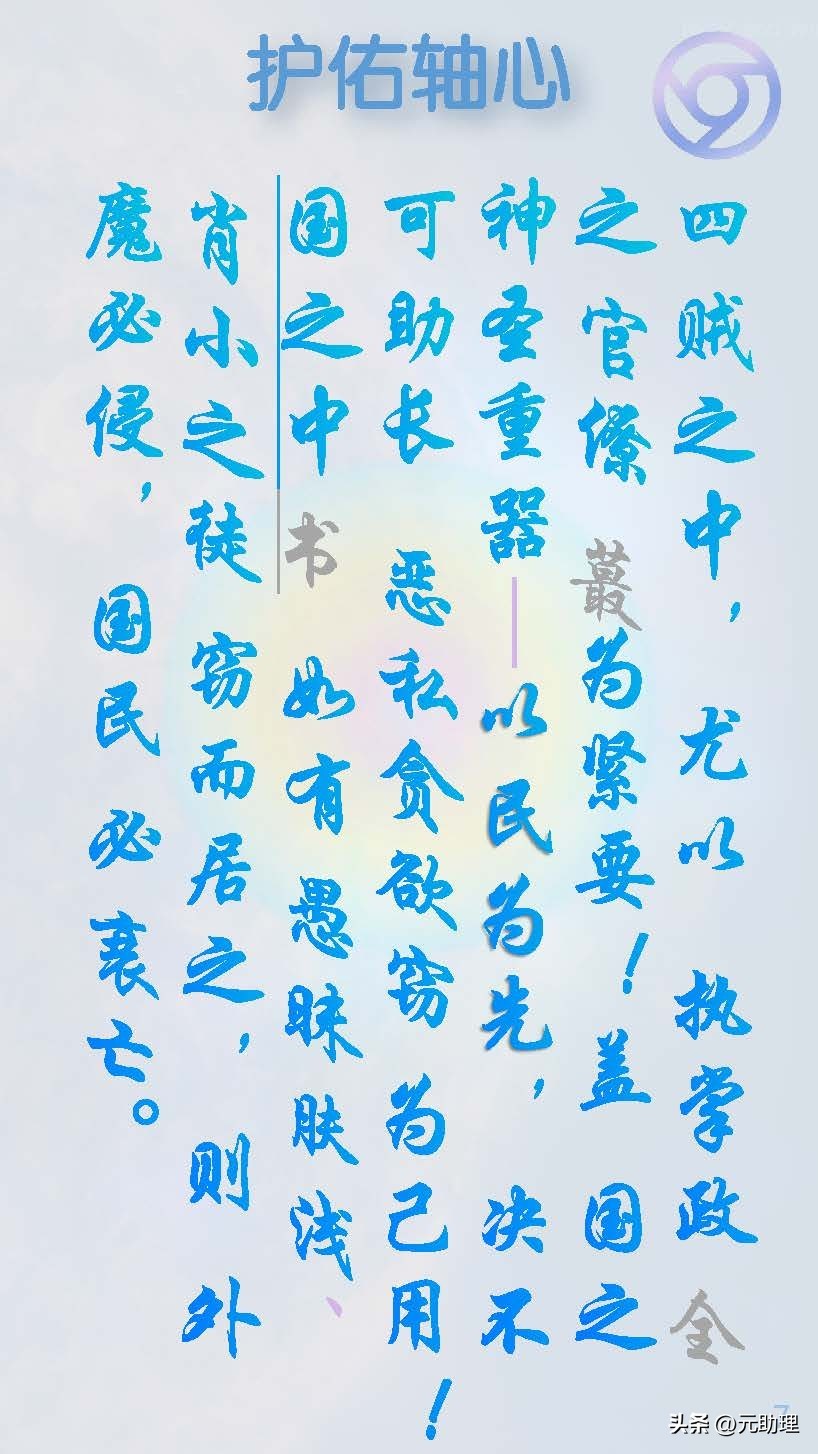 护佑轴心
四贼之中，尤以执掌政全
之官僚蕞为紧要！盖国之
神圣重器—以民为先，决不
可助长恶私贪欲窃为己用！
国之中书如有愚昧肤浅、
肖小之徒窃而居之，则外
魔必侵，国民必衰亡。
7
头条 @元助理